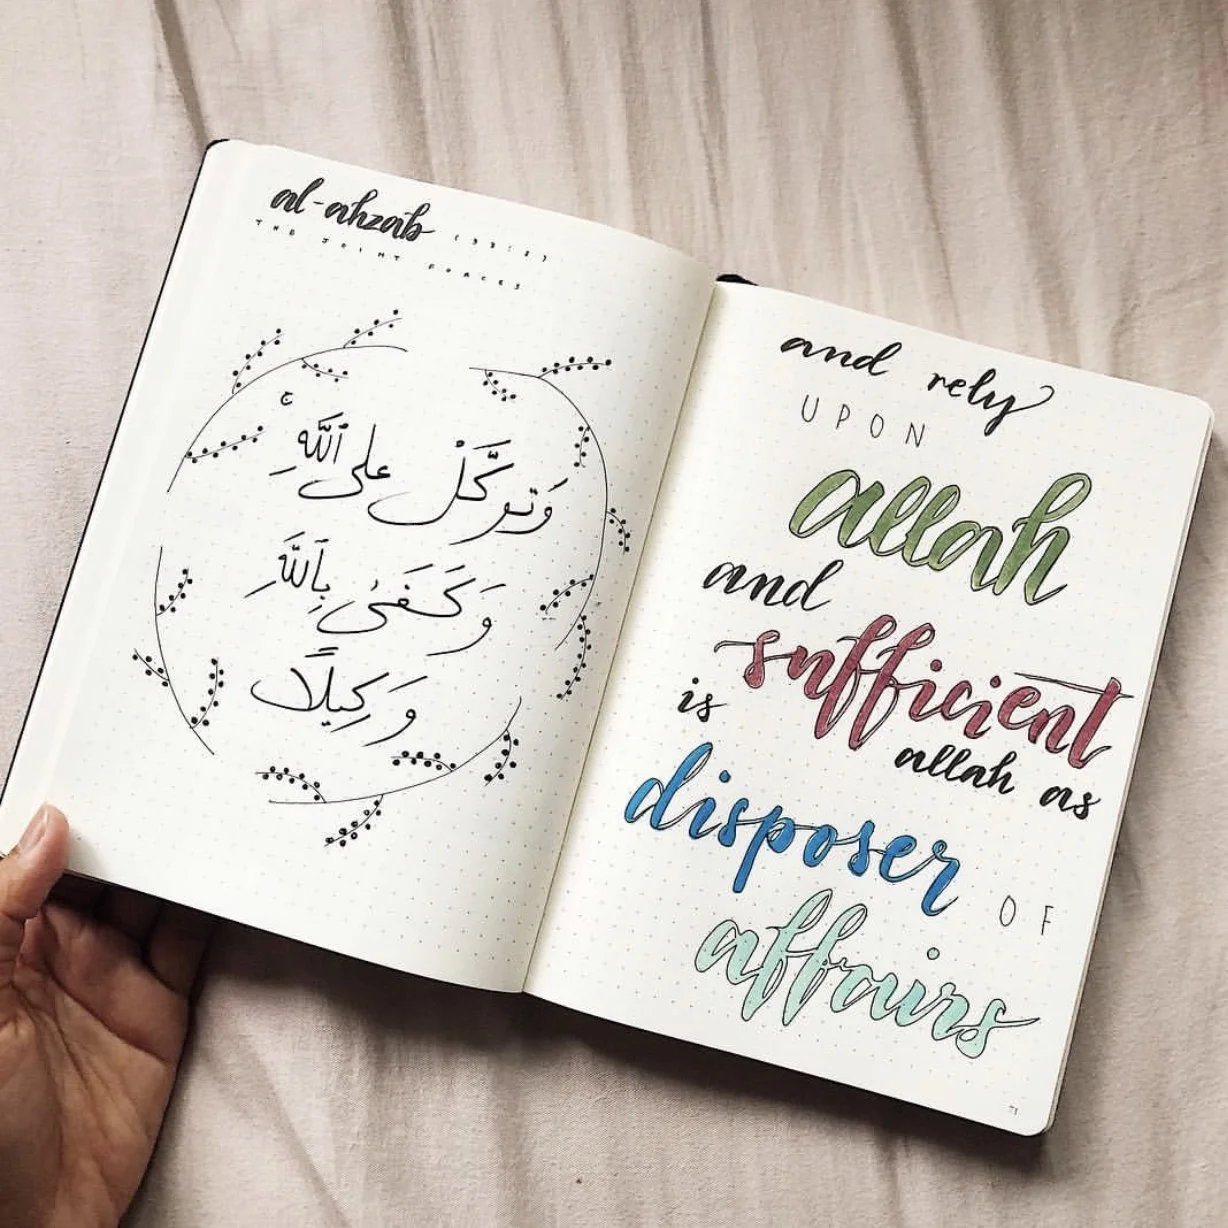 al-ahzab (33:2)
THE JOINT FORCES
وَتَوَكَّلْ عَلَى ٱللَّهِ ۚ
وَكَفَىٰ بِٱللَّهِ
وَكِيلًا
and rely
UPON
allah
and
sufficient
is
allah as
disposer OF
affairs